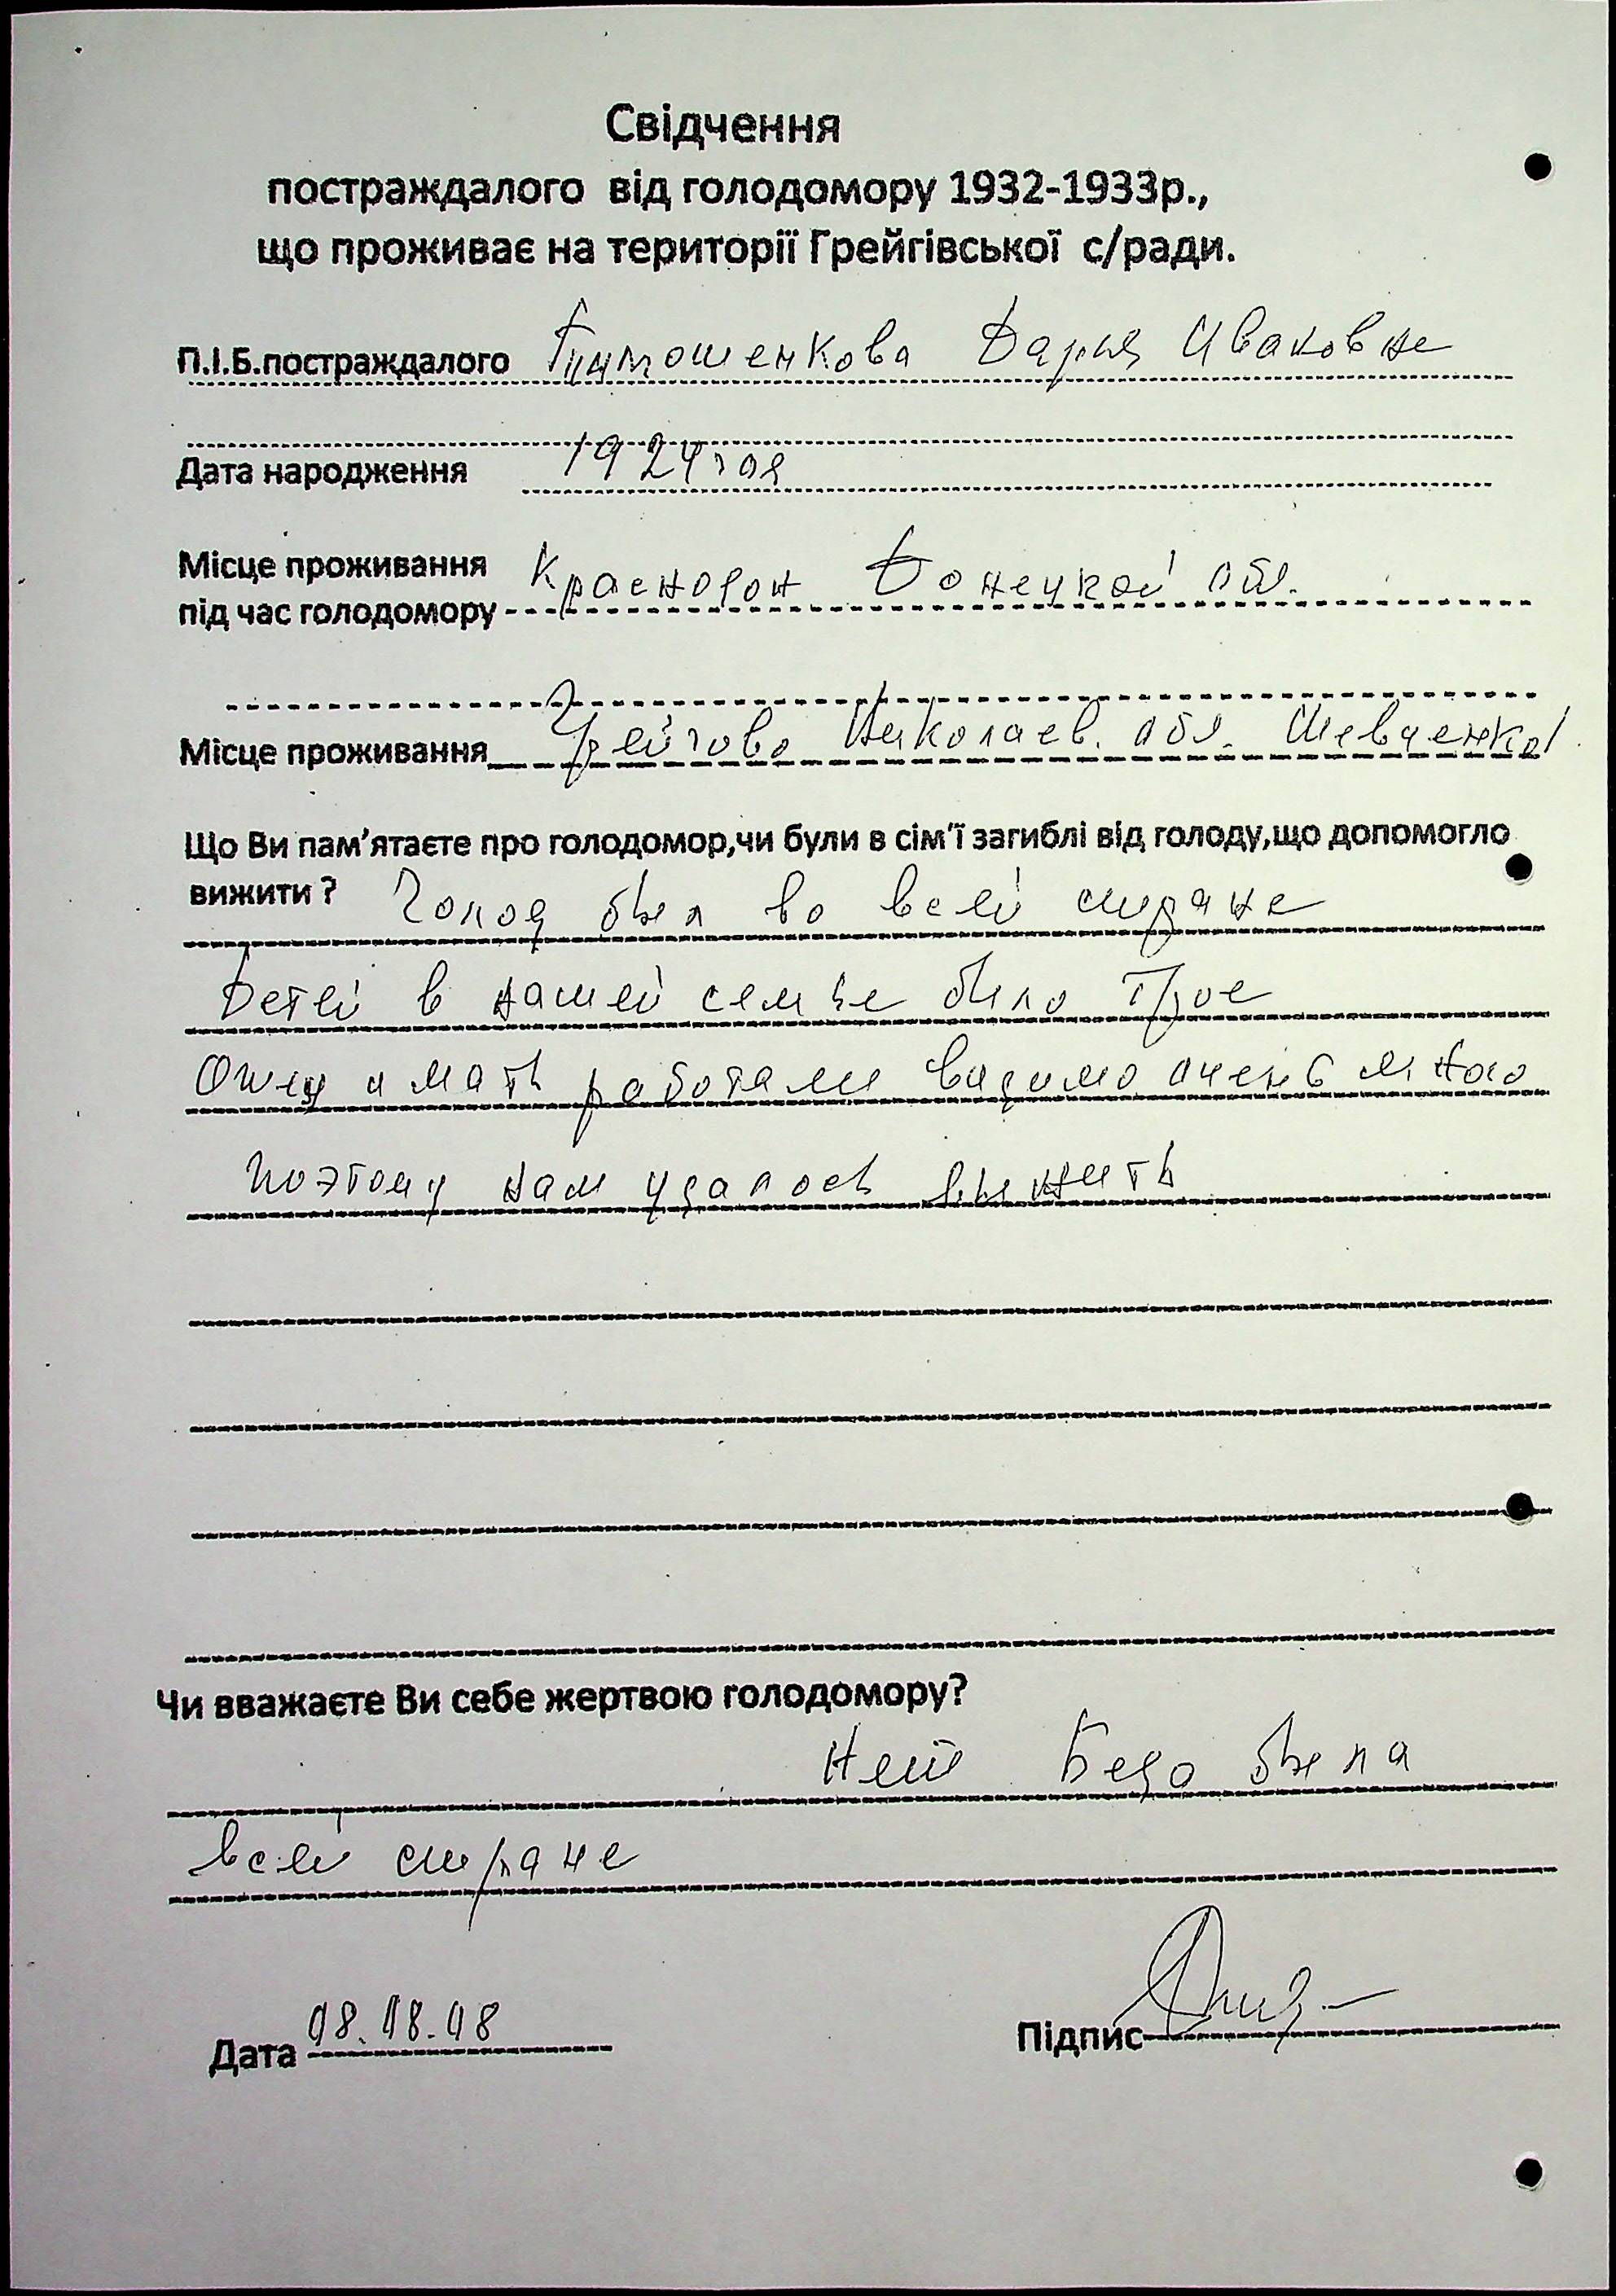 Свідчення
постраждалого від голодомору 1932-1933р.,
що проживає на території Грейгівської с/ради.
П.І.Б.постраждалого Тимошенкова Дарья Ивановне
Дата народження 1924
Місце проживання
під час голодомору Краснодон Донецкой обл.
Місце проживання Грейгово Николаев. обл. Шевченко
Що Ви пам'ятаєте про голодомор,чи були в сім'ї загиблі від голоду,що допомогло
вижити ? Голод был во всей стране
Детей в нашей семье было трое
Отец и мать работали видимо очень много
поэтому нам удалось выжить
Чи вважаєте Ви себе жертвою голодомору?
Нет Беда была
всей стране
Дата 08.08.08 Підпис